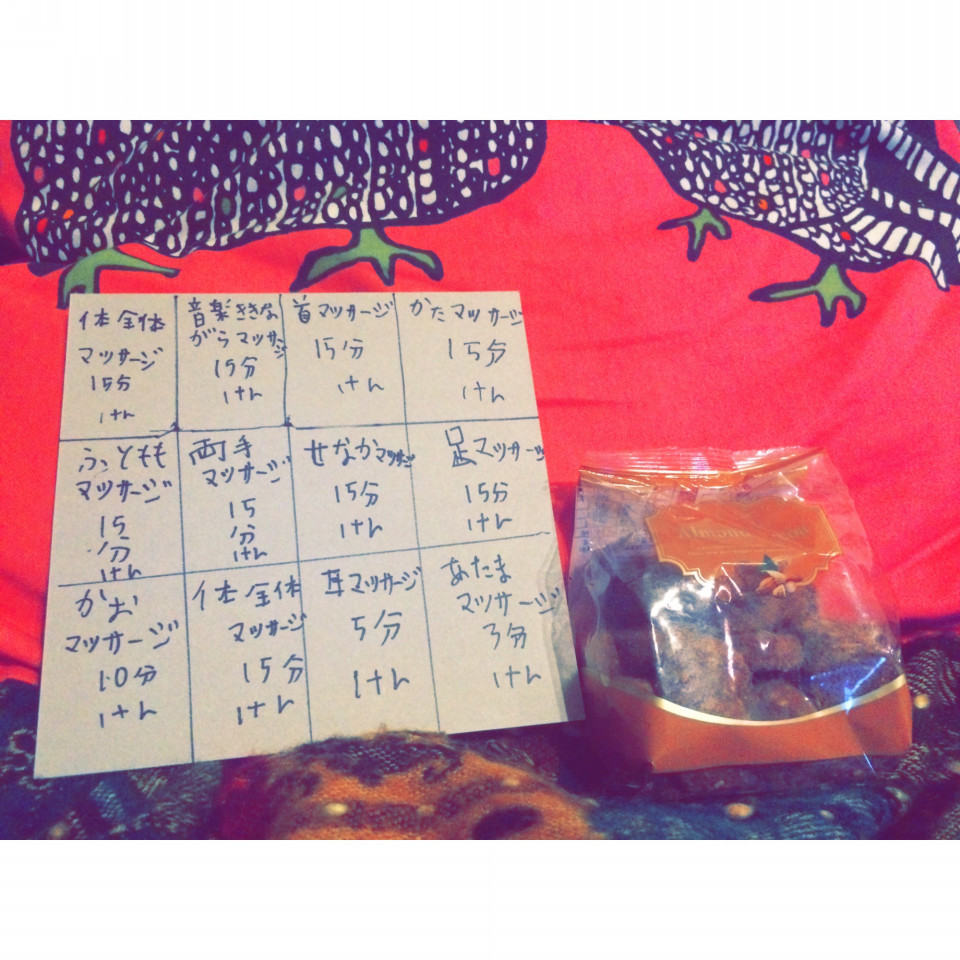 体全体
マッサージ
15分
けん
音楽ききな
がらマッサージ
15分
けん
首マッサージ
15分
けん
かたマッサージ
15分
けん
ふともも
マッサージ
15
分
けん
両手
マッサージ
15
分
けん
せなかマッサージ
15分
けん
足マッサージ
15分
けん
かお
マッサージ
10分
けん
体全体
マッサージ
15分
けん
耳マッサージ
5分
けん
あたま
マッサージ
3分
けん